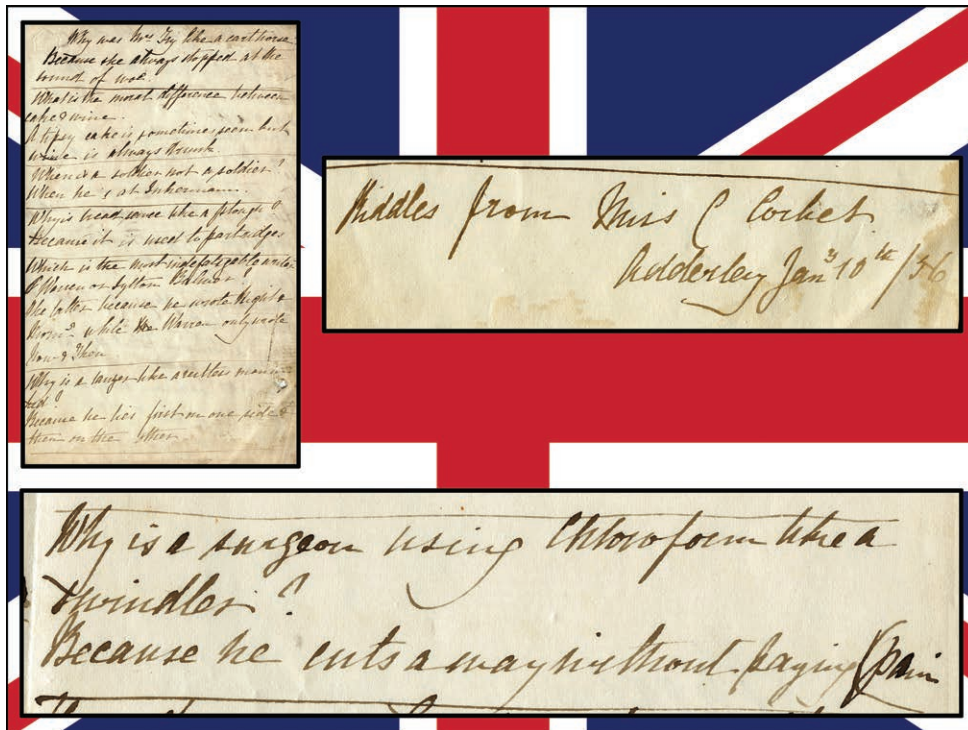 Why was Mrs Fry like a cart horse
Because she always stopped at the
sound of woe.
What is the moral difference between
cake & wine.
A tipsy cake is sometimes seen but
wine is always drunk.
When is a soldier not a soldier?
When he's at Inkermann.
Why is bread sauce like a plough?
Because it is used to partridges
Which is the most indefatigable writer
Warren or Lytton Bulwer?
The latter because he wrote Night &
Morng while Warren only wrote
Now & Then
Why is a lawyer like a restless man in
bed?
Because he lies first on one side &
then on the other
Riddles from Miss C Corbet
Adderley Jany 10th/56
Why is a surgeon using Chloroform like a
swindler?
Because he cuts away without paying (pain